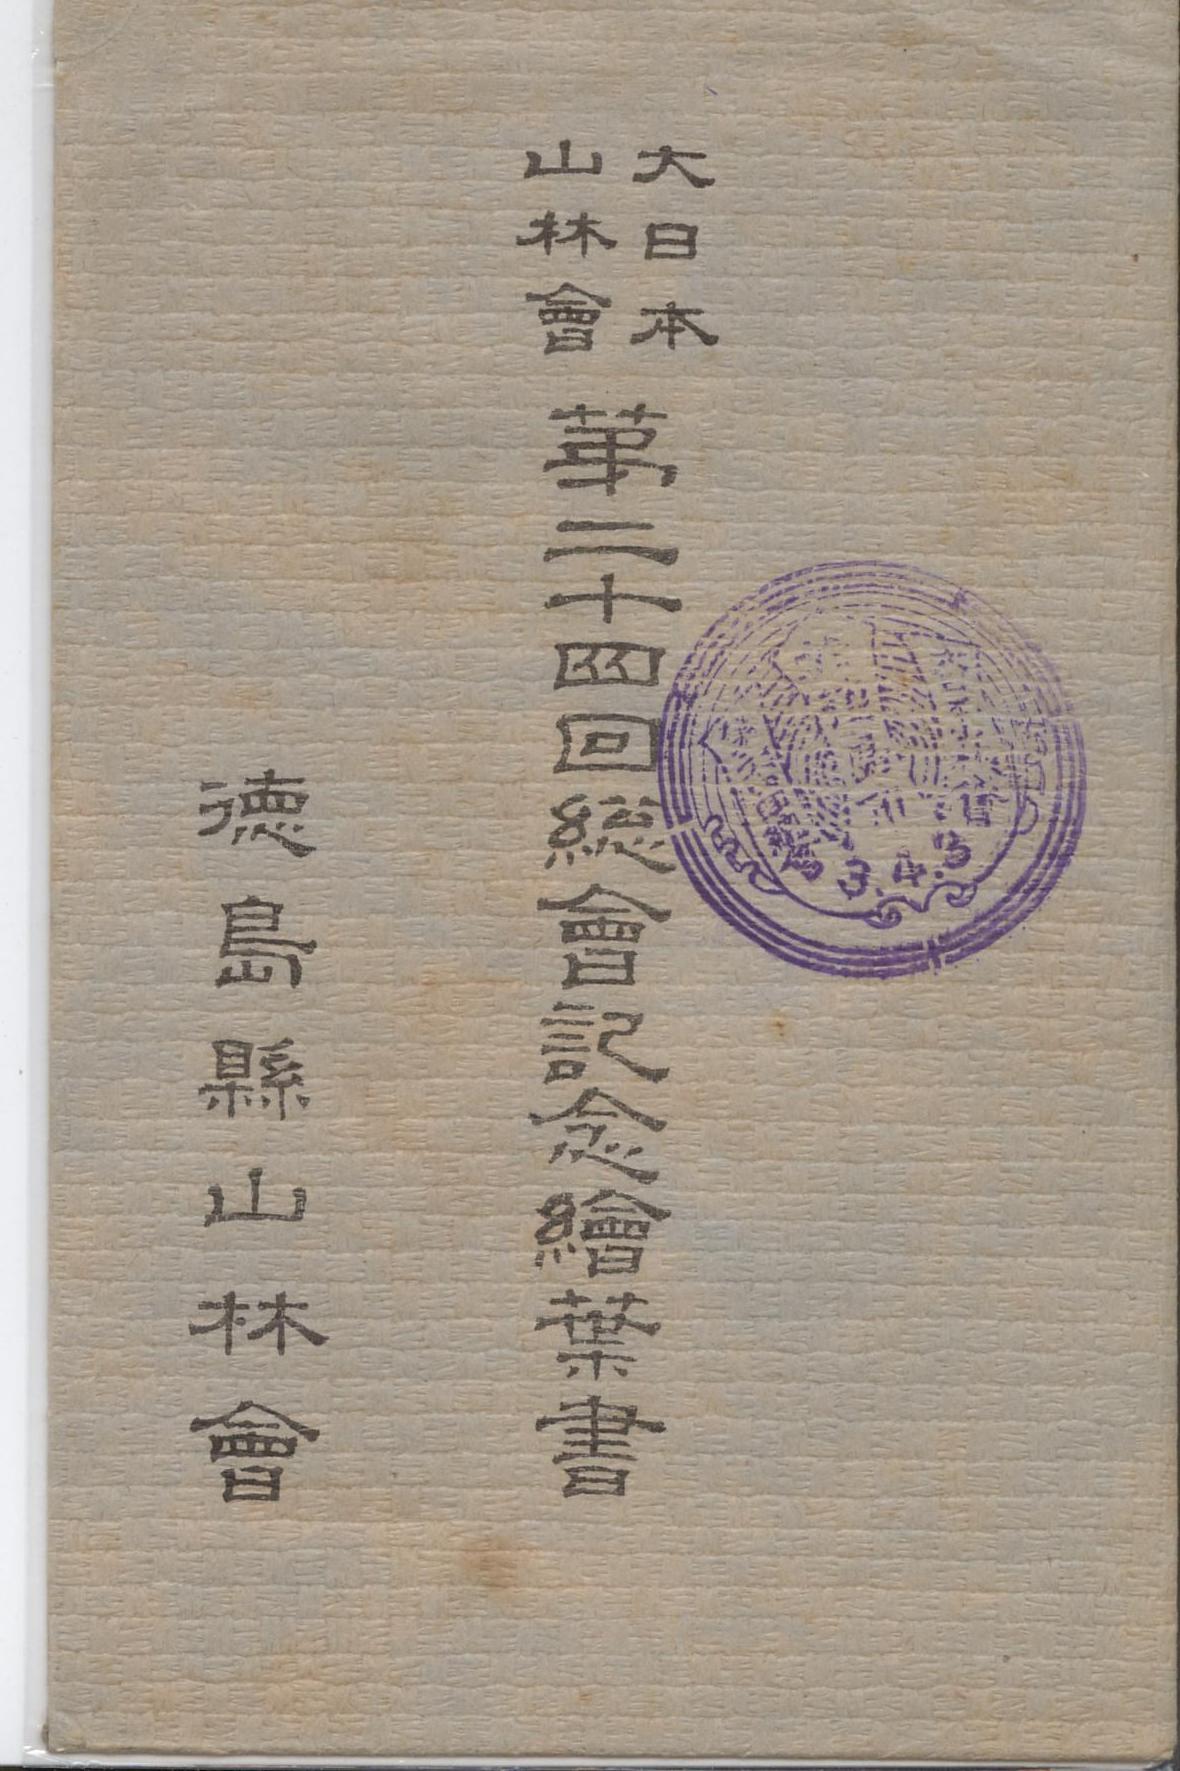 大日本
山林會
第二十四回総會記念繪葉書
徳島縣山林會
3.4.3